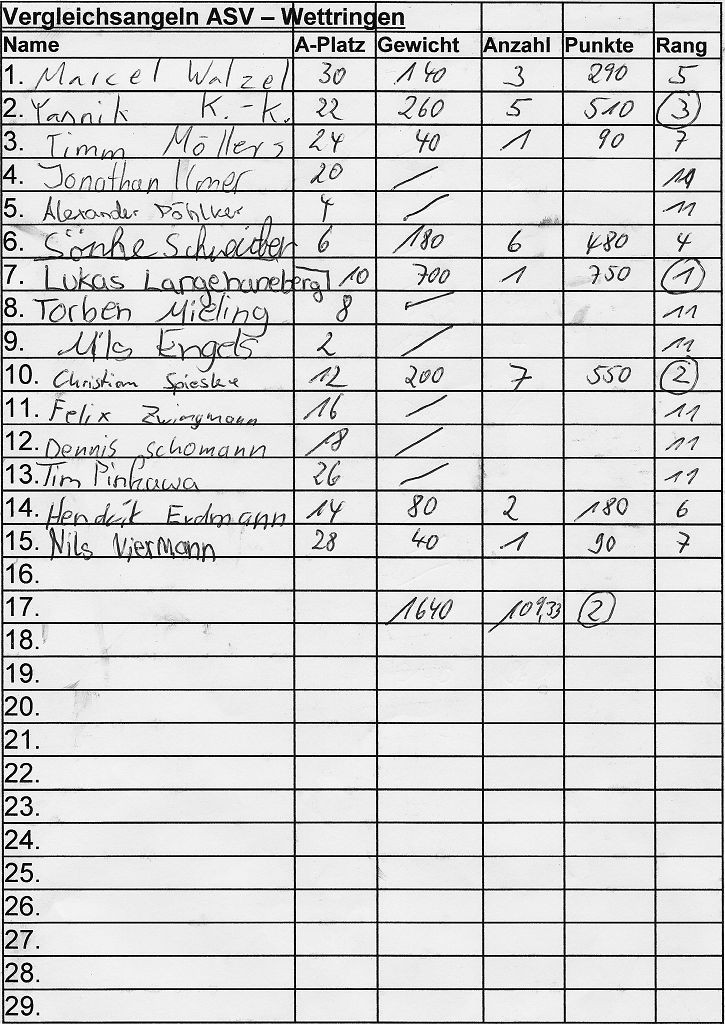 Vergleichsangeln ASV – Wettringen
Name A-Platz Gewicht Anzahl Punkte Rang
1. Marcel Walzel 30 140 3 290 5
2. Yannik K.-K. 22 260 5 510 3
3. Timm Möllers 24 40 1 90 7
4. Jonathan Ilmer 20 / 11
5. Alexander Döhlker 4 / 11
6. Sönke Schneider 6 180 6 480 4
7. Lukas Langehaneberg 10 700 1 750 1
8. Torben Mieling 8 / 11
9. Nils Engels 2 / 11
10. Christian Spieske 12 200 7 550 2
11. Felix Zwingmann 16 / 11
12. Dennis Schomann 18 / 11
13. Tim Pinkawa 26 / 11
14. Hendrik Erdmann 14 80 2 180 6
15. Nils Viermann 28 40 1 90 7
16.
17. 1640 109,33 2
18.
19.
20.
21.
22.
23.
24.
25.
26.
27.
28.
29.